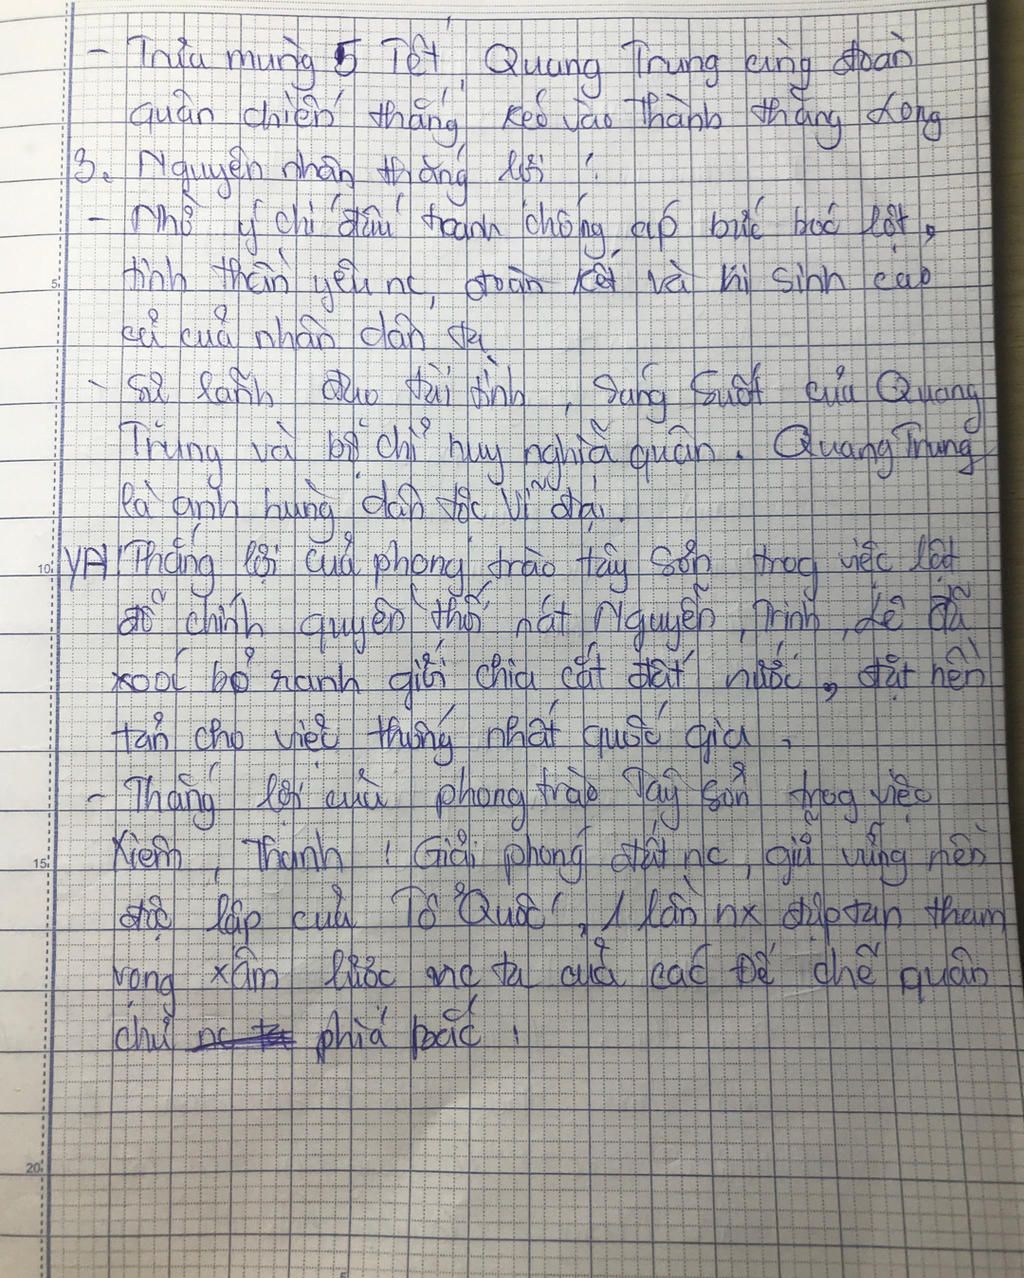 - Trưa mùng 5 Tết, Quang Trung cùng đoàn
quân chiến thắng kéo vào thành thăng Long
3. Nguyên nhân thắng lợi :
- Nhờ ý chí đấu tranh chống áp bức bóc lột,
tinh thần yêu nc, đoàn kết và hi sinh cao
cả của nhân dân ta
- Sự lãnh đạo tài tình, sáng suốt của Quang
Trung và bộ chỉ huy nghĩa quân. Quang Trung
là anh hùng dân tộc vĩ đại.
YN: Thắng lợi của phong trào tây Sơn trog việc lật
đổ chính quyền thối nát Nguyễn, Trịnh, Lê đã
xoá bỏ ranh giới chia cắt đất nước, đặt nền
tản cho việc thống nhất quốc gia.
- Thắng lợi của phong trào Tây Sơn trog việc
Xiêm, Thanh : Giải phóng đất nc, giữ vững nền
độc lập của Tổ Quốc, 1 lần nx đập tan tham
vọng xâm lược nc ta của các Đế chế quân
chủ phía bắc.
5
10
15
20